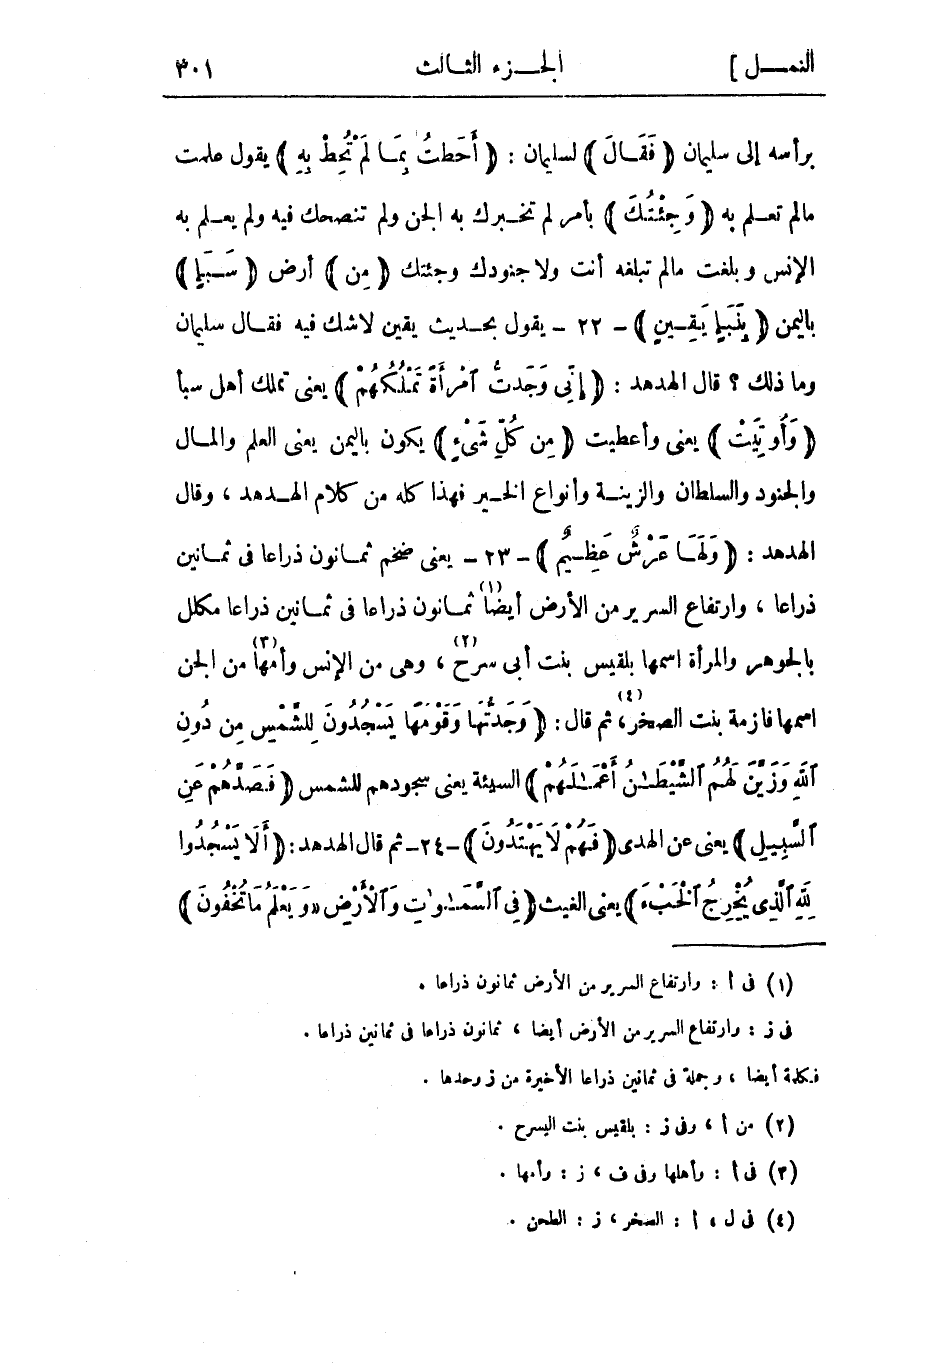 النمــل ] الجــزء الثــالث ٣٠١
برأسه إلى سليمان ( فَقَــالَ ) لسليمان : ( أَحَطتُ بِمَــا لَمْ تُحِطْ بِهِ ) يقول علمت
مالم تعــلم به ( وَجِئْتُكَ ) بأمر لم تخــبرك به الجن ولم تنصحك فيه ولم يعــلم به
الإنس وبلغت مالم تبلغه أنت ولا جنودك وجئتك ( مِن ) أرض ( سَــبَإٍ )
باليمن ( بِنَبَإٍ يَقِــينٍ ) - ٢٢ - يقول بحــديث يقين لاشك فيه فقــال سليمان
وما ذلك ؟ قال الهدهد : ( إِنِّى وَجَدتُّ ٱمْرَأَةً تَمْلُكُهُمْ ) يعنى تملك أهل سبأ
( وَأُوتِيَتْ ) يعنى وأعطيت ( مِن كُلِّ شَىْءٍ ) يكون باليمن يعنى العلم والمــال
والجنود والسلطان والزينــة وأنواع الخــير فهذا كله من كلام الهــدهد ، وقال
الهدهد : ( وَلَهَــا عَرْشٌ عَظِــيمٌ ) - ٢٣ - يعنى ضخم ثمــانون ذراعا فى ثمــانين
ذراعا ، وارتفاع السرير من الأرض أيضا (١) ثمــانون ذراعا فى ثمــانين ذراعا مكلل
بالجوهر والمرأة اسمها بلقيس بنت أبى سرح (٢) ، وهى من الإنس وأمها (٣) من الجن
اسمها فازمة بنت الصخر (٤) ، ثم قال : ( وَجَدتُّهَا وَقَوْمَهَا يَسْجُدُونَ لِلشَّمْسِ مِن دُونِ
ٱللَّهِ وَزَيَّنَ لَهُمُ ٱلشَّيْطَـٰنُ أَعْمَـٰلَهُمْ ) السيئة يعنى سجودهم للشمس ( فَصَدَّهُمْ عَنِ
ٱلسَّبِيلِ ) يعنى عن الهدى ( فَهُمْ لَا يَهْتَدُونَ ) - ٢٤ - ثم قال الهدهد : ( أَلَّا يَسْجُدُوا
لِلَّهِ ٱلَّذِى يُخْرِجُ ٱلْخَبْءَ ) يعنى الغيث ( فِى ٱلسَّمَـٰوَٰتِ وَٱلْأَرْضِ «وَيَعْلَمُ مَا تُخْفُونَ )
(١) فى أ : وارتفاع السرير من الأرض ثمانون ذراعا .
فى ز : وارتفاع السرير من الأرض أيضا ، ثمانون ذراعا فى ثمانين ذراعا .
فكلمة أيضا ، وجملة فى ثمانين ذراعا الأخيرة من ز وحدها .
(٢) من أ ، وفى ز : بلقيس بنت اليسرح .
(٣) فى أ : وأهلها وفى ف ، ز : وأمها .
(٤) فى ل ، أ : الصخر ، ز : الطحن .